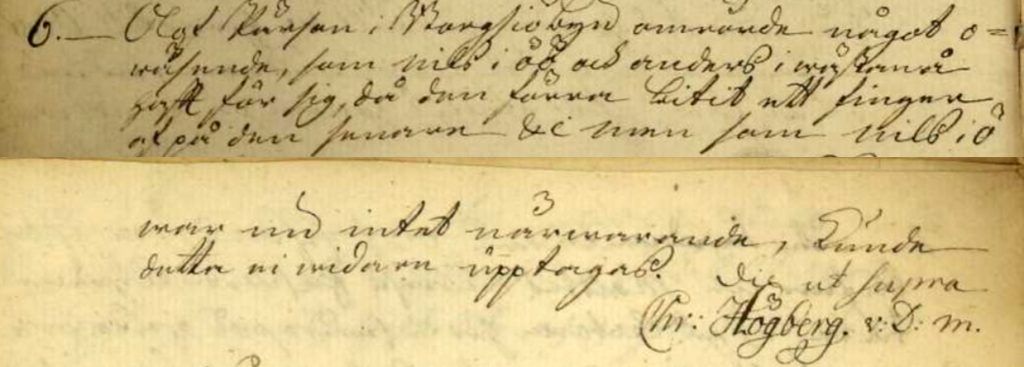 6. Olof Pärson i Borgsjöbyn omrörde något o=
wäsende, som nils i öö och anders i wästanå
haft för sig, då den förra bitit ett finger
af på den senare &c men som nils i ö
war nu intet närwarande, Kunde
detta ei widare upptagas. Die ut supra
Chr: Högberg. v: D: m.